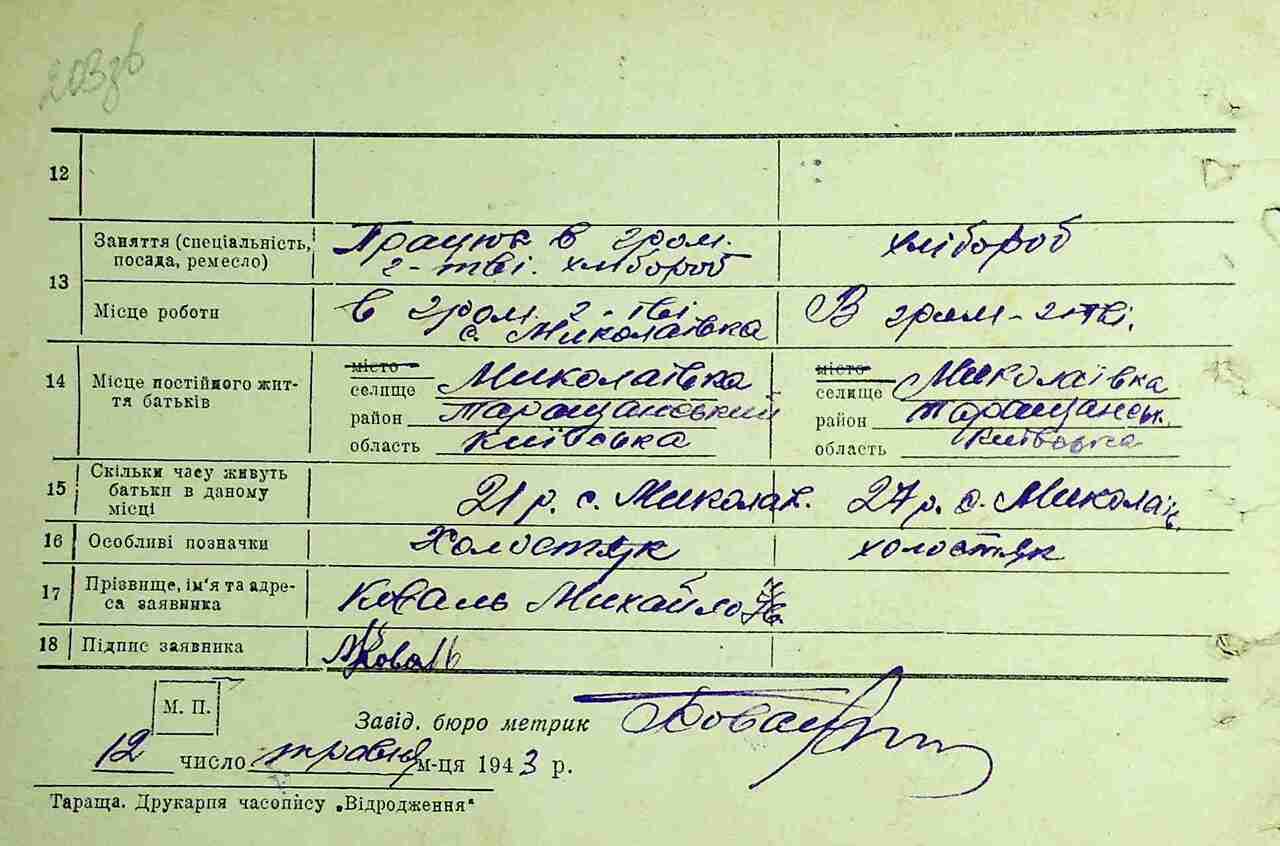 203зв
12
13 Заняття (спеціальність, посада, ремесло) Працює в гром. г-тві. хлібороб хлібороб
Місце роботи в гром. г-тві с. Миколаївка В гром-г-тві.
14 Місце постійного життя батьків
місто місто
селище Миколаївка селище Миколаївка
район Таращанський район Таращанськ.
область Київська область Київська
15 Скільки часу живуть батьки в даному місці 21 р. с. Миколаїв. 27 р. с. Миколаїв.
16 Особливі позначки Холостяк холостяк
17 Прізвище, ім'я та адреса заявника Коваль Михайло
18 Підпис заявника МКоваль
М. П.
Завід. бюро метрик
12 число травня м-ця 1943 р.
Тараща. Друкарня часопису „Відродження"